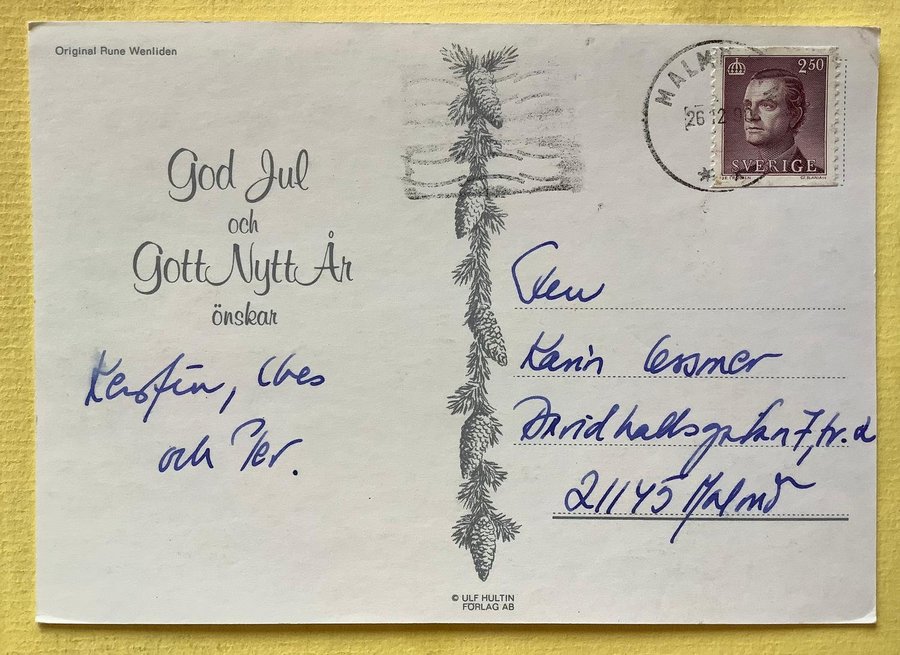 Original Rune Wenliden
God Jul
och
Gott Nytt År
önskar
Kerstin,
och Per.
MALM
26 12 90
2.50
SVERIGE
Karin
Davidhallsgatan 7, tr. 2
211 45 Malmö
© ULF HULTIN
FÖRLAG AB